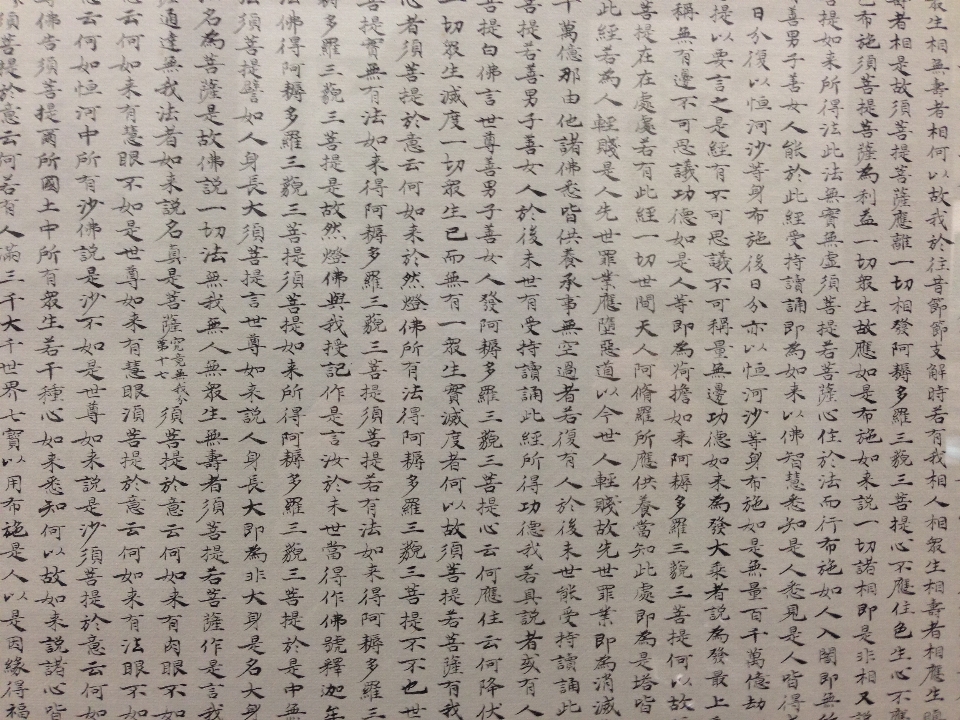 眾生相無壽者相何以故我於往昔節節支解時若有我相人相眾生相壽者相應生瞋
者相是故須菩提菩薩應離一切相發阿耨多羅三藐三菩提心不應住色生心不
布施須菩提菩薩為利益一切眾生故應如是布施如来説一切諸相即是非相又説
菩提如来所得法此法無實無虛須菩提若菩薩心住於法而行布施如人入闇即無
善男子善女人能於此經受持讀誦即為如来以佛智慧悉知是人悉見是人皆得
日分復以恒河沙等身布施後日分亦以恒河沙等身布施如是無量百千萬億劫
提以要言之是經有不可思議不可稱量無邊功德如来為發大乘者説為發最上
稱無有邊不可思議功德如是人等即為荷擔如来阿耨多羅三藐三菩提何以故
菩提在在處處若有此經一切世間天人阿脩羅所應供養當知此處即為是塔皆
此經若為人輕賤是人先世罪業應墮惡道以今世人輕賤故先世罪業即為消滅
千萬億那由他諸佛悉皆供養承事無空過者若復有人於後末世能受持讀誦此
提若善男子善女人於後末世有受持讀誦此經所得功德我若具説者或有人
菩提白佛言世尊善男子善女人發阿耨多羅三藐三菩提心云何應住云何降伏
一切眾生滅度一切眾生已而無有一眾生實滅度者何以故須菩提若菩薩有我
心者須菩提於意云何如来於然燈佛所有法得阿耨多羅三藐三菩提不不也世
菩提實無有法如来得阿耨多羅三藐三菩提須菩提若有法如来得阿耨多羅三
多羅三藐三菩提是故然燈佛與我授記作是言汝於来世當得作佛號釋迦牟
法佛得阿耨多羅三藐三菩提須菩提如来所得阿耨多羅三藐三菩提於是中無
法須菩提譬如人身長大須菩提言世尊如来説人身長大即為非大身是名大身
名為菩薩是故佛説一切法無我無人無眾生無壽者須菩提若菩薩作是言我
通達無我法者如来説名真是菩薩究竟無我分第十七須菩提於意云何如来有肉眼不如
云何如来有慧眼不如是世尊如来有慧眼須菩提於意云何如来有法眼不如
云何如恒河中所有沙佛説是沙不如是世尊如来説是沙須菩提於意云何如
佛告須菩提爾所國土中所有眾生若干種心如来悉知何以故如来説諸心皆
須菩提於意云何若有人滿三千大千世界七寶以用布施是人以是因緣得福